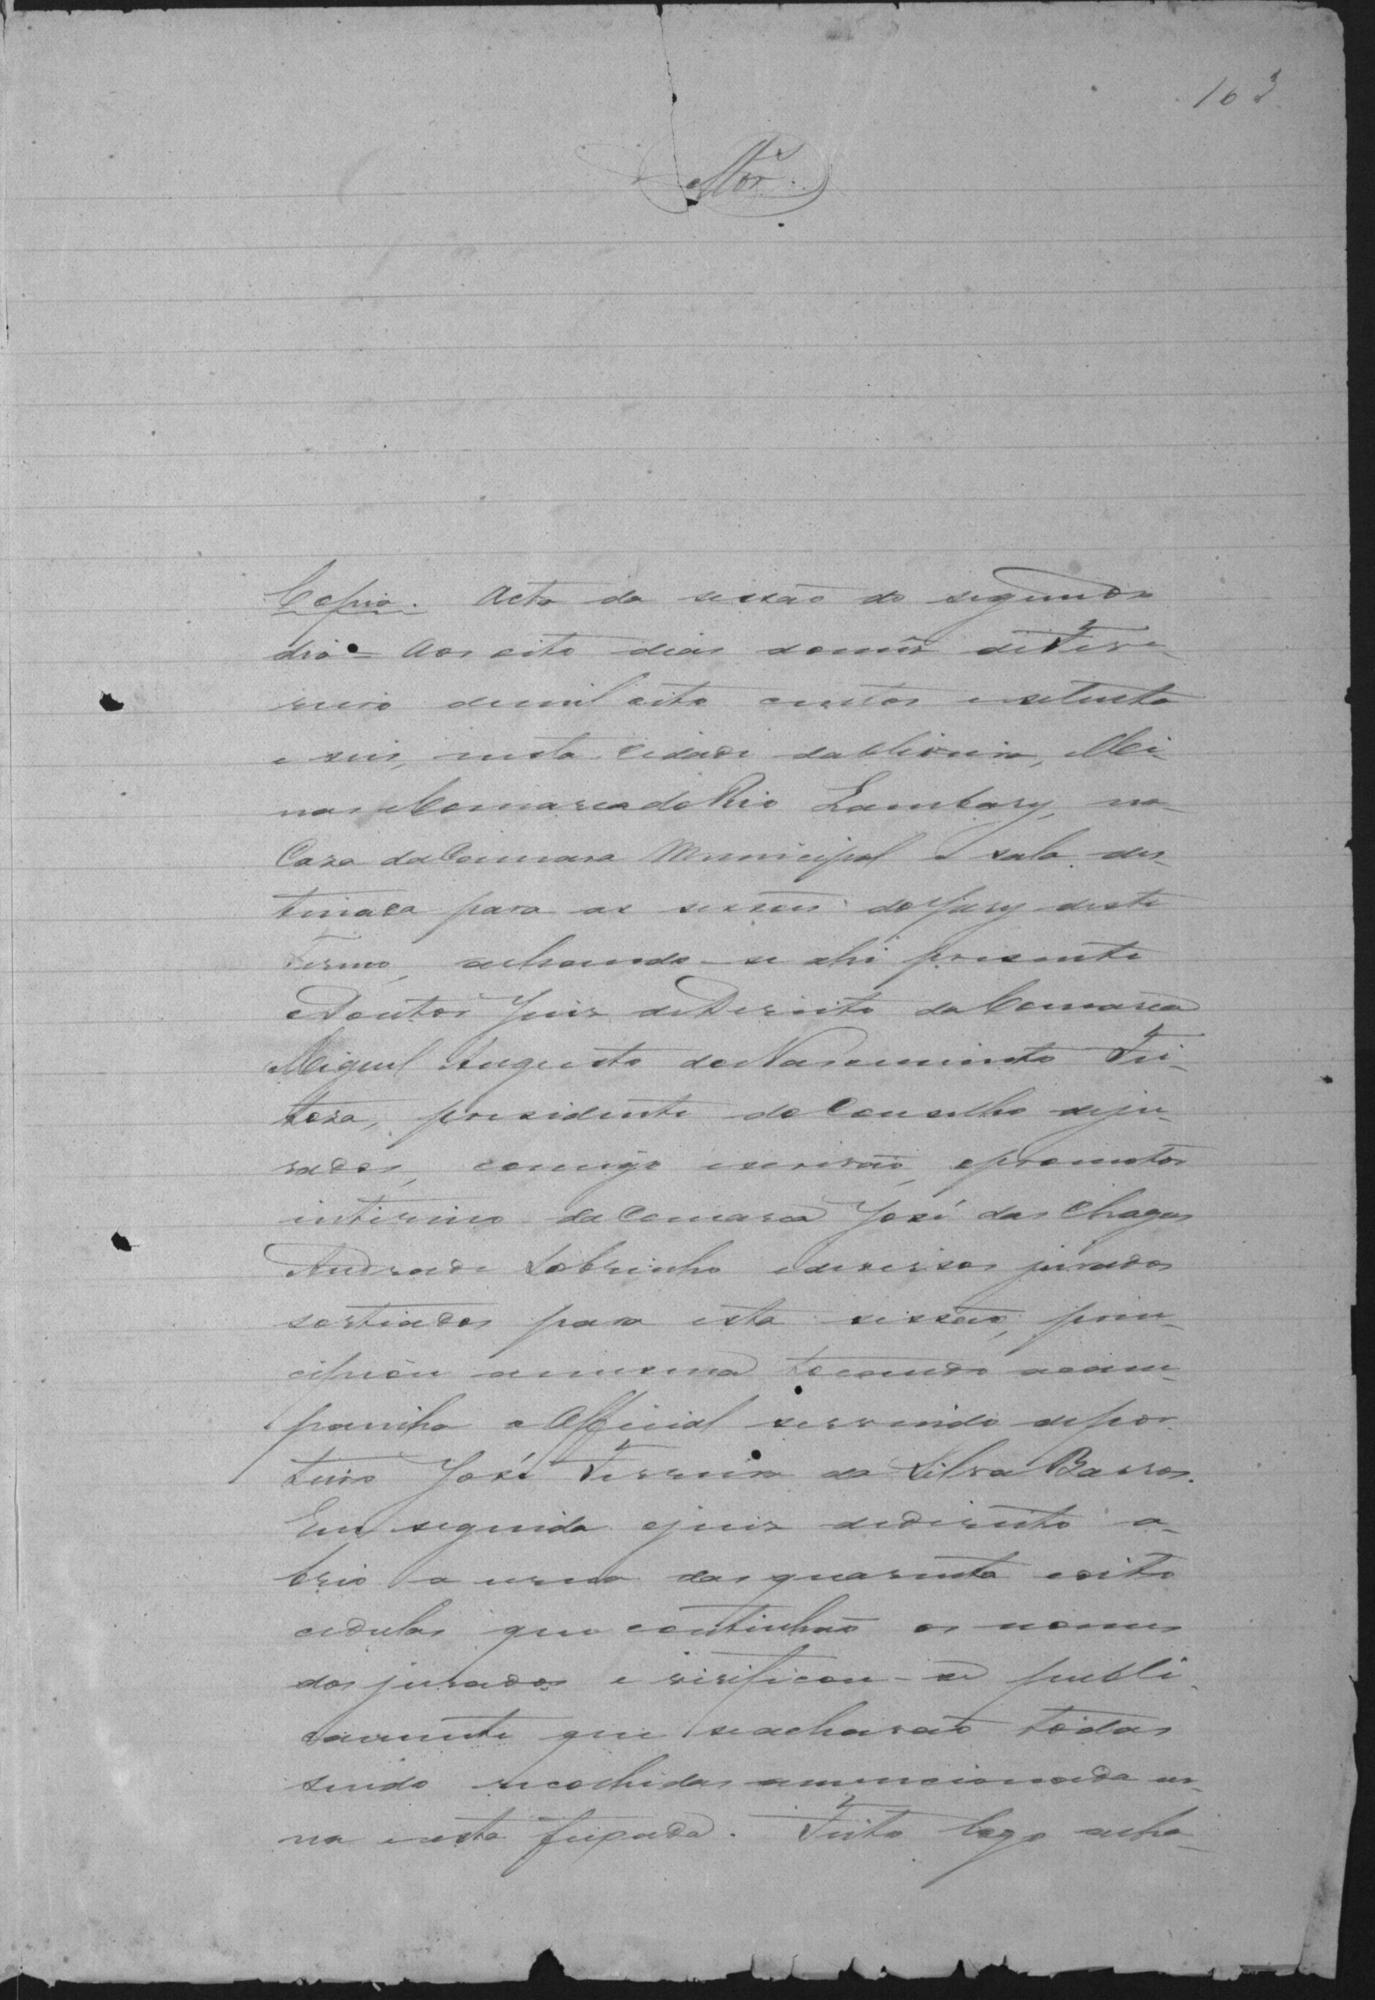 163
Copia. Acta da sessão do segundo
dia = Aos oito dias do mez de Feve-
reiro de mil oito centos e setenta
e seis, nesta Cidade da Oliveira, Mi-
nas Comarca do Rio Lambary, na
Caza da Camara Municipal e sala des-
tinada para as sessões do Jury deste
Termo, achando-se ahi presente
o Doutor Juiz de Direito da Comarca
Miguel Augusto do Nascimento Fei-
tosa, presidente do Conselho de ju-
rados, comigo escrivão, e promotor
interino da Comarca José das Chagas
Andrade Sobrinho e diversos jurados
sorteados para esta sessão, prin-
cipiou a mesma tocando a cam-
painha o Official servindo de por-
teiro José Ferreira da Silva Barros.
Em seguida o juiz de direito a-
brio a urna das quarenta e oito
cedulas que continhão os nomes
dos jurados e verificou-se publi-
camente que se acharão todas
sendo recolhidas a mencionada ur-
na e esta fexada. Feito logo acha-